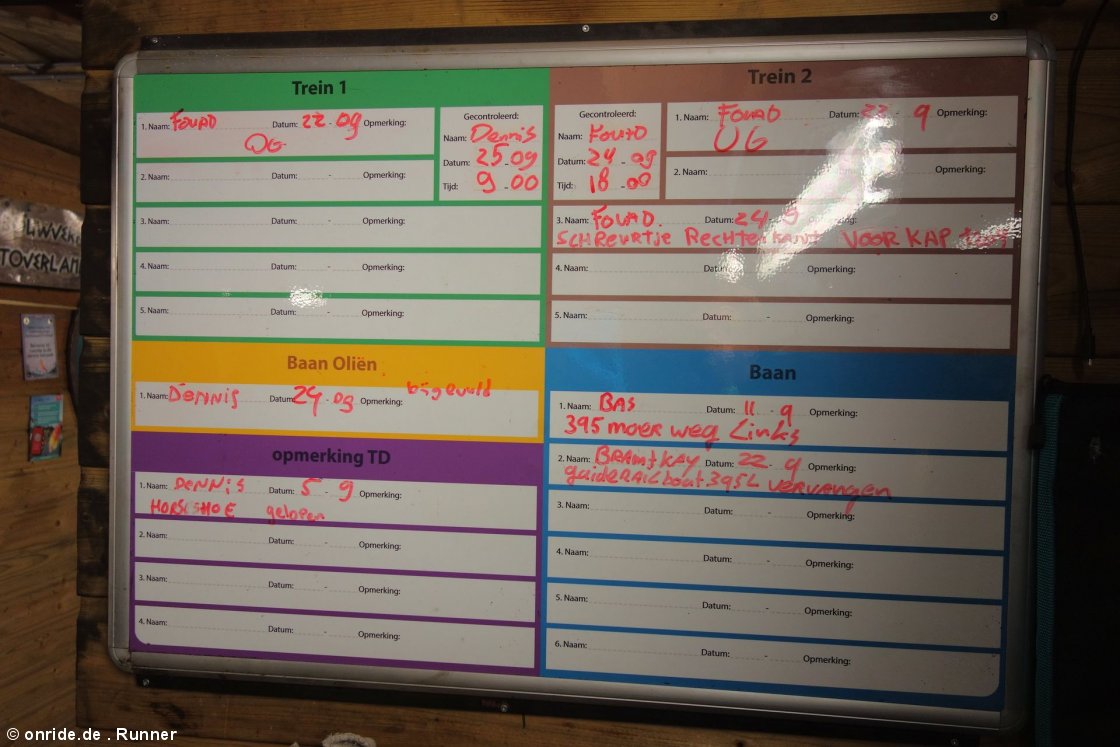 Trein 1
1. Naam: FOUAD Datum: 22-09 Opmerking:
OG
2. Naam: Datum: - Opmerking:
Gecontroleerd:
Naam: Dennis
Datum: 25-09
Tijd: 9-00
3. Naam: Datum: - Opmerking:
4. Naam: Datum: - Opmerking:
5. Naam: Datum: - Opmerking:
Trein 2
Gecontroleerd:
Naam: FOUAD
Datum: 24-09
Tijd: 18-00
1. Naam: FOUAD Datum: 22-9 Opmerking:
UG
2. Naam: Opmerking:
3. Naam: FOUAD. Datum: 24-9
SCHREURTJE RECHTERKANT VOOR KAP
4. Naam: Datum: Opmerking:
5. Naam: Datum: - Opmerking:
Baan Oliën
1. Naam: DENNIS Datum: 24-09 Opmerking: bijgevuld
opmerking TD
1. Naam: DENNIS Datum: 5-9 Opmerking:
HORSESHOE gelopen
2. Naam: Datum: - Opmerking:
3. Naam: Datum: - Opmerking:
4. Naam: Datum: - Opmerking:
Baan
1. Naam: BAS Datum: 11-9 Opmerking:
395 moer weg Links
2. Naam: BRAM+KAY Datum: 22-9 Opmerking:
guideRAIL bout 395L vervangen
3. Naam: Datum: - Opmerking:
4. Naam: Datum: - Opmerking:
5. Naam: Datum: - Opmerking:
6. Naam: Datum: - Opmerking:
TOVERLAN
© onride.de . Runner